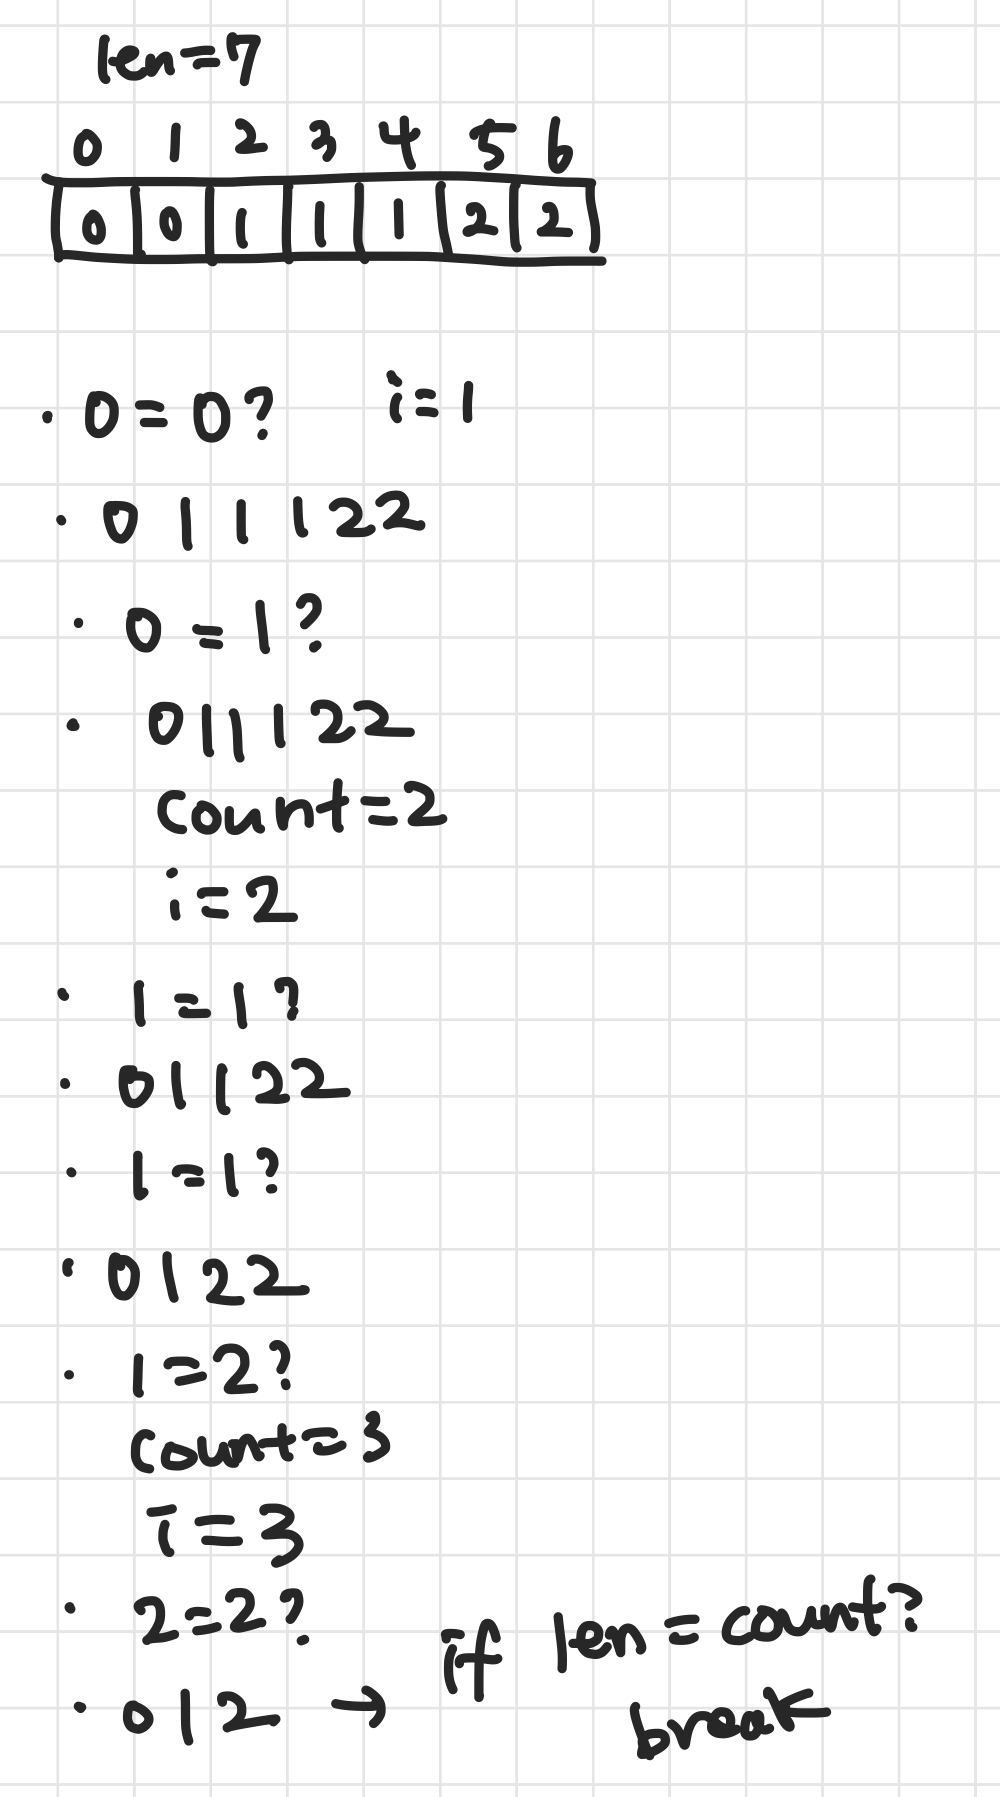 len=7
0 1 2 3 4 5 6
0 0 1 1 1 2 2
· 0=0? i=1
· 011122
· 0=1?
· 011122
count=2
i=2
· 1=1?
· 01122
· 1=1?
· 0122
· 1=2?
count=3
i=3
· 2=2?
· 012 → if len=count?
break